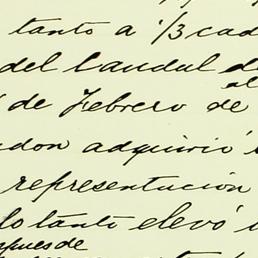 tanto a 1/3 cad
del caudal d
el
de Febrero de
don adquirió
representación
lo tanto elevó
spues de